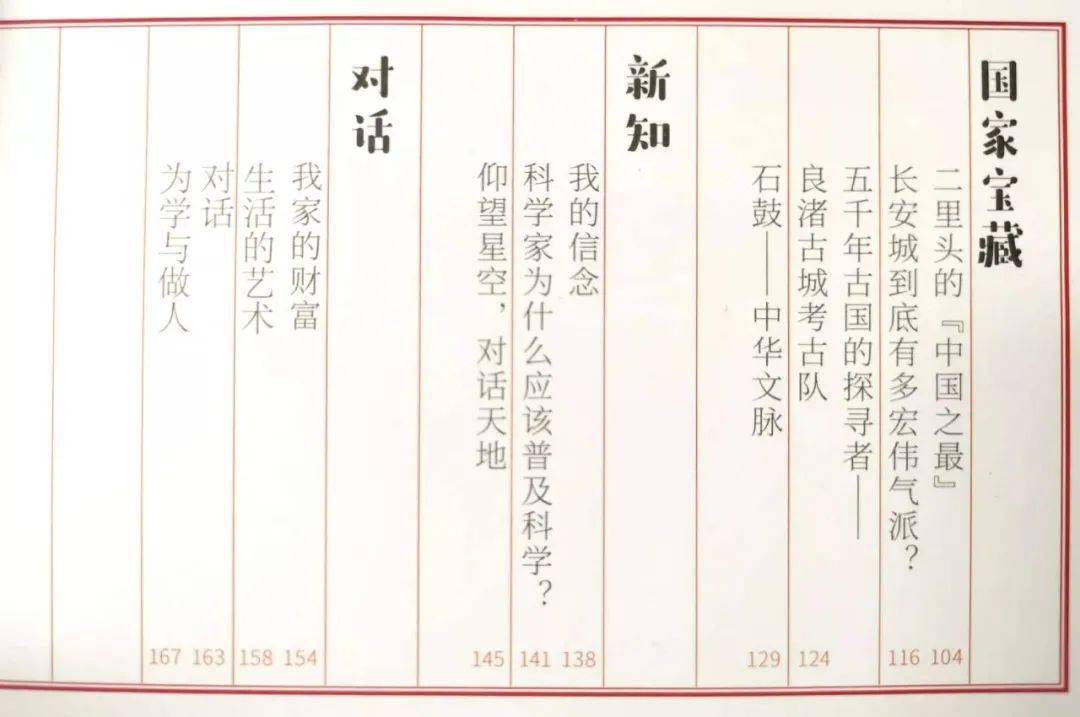 国家宝藏
二里头的『中国之最』
104
长安城到底有多宏伟气派？
116
五千年古国的探寻者——
良渚古城考古队
124
石鼓——中华文脉
129
新知
我的信念
138
科学家为什么应该普及科学？
141
仰望星空，对话天地
145
对话
我家的财富
154
生活的艺术
158
对话
163
为学与做人
167